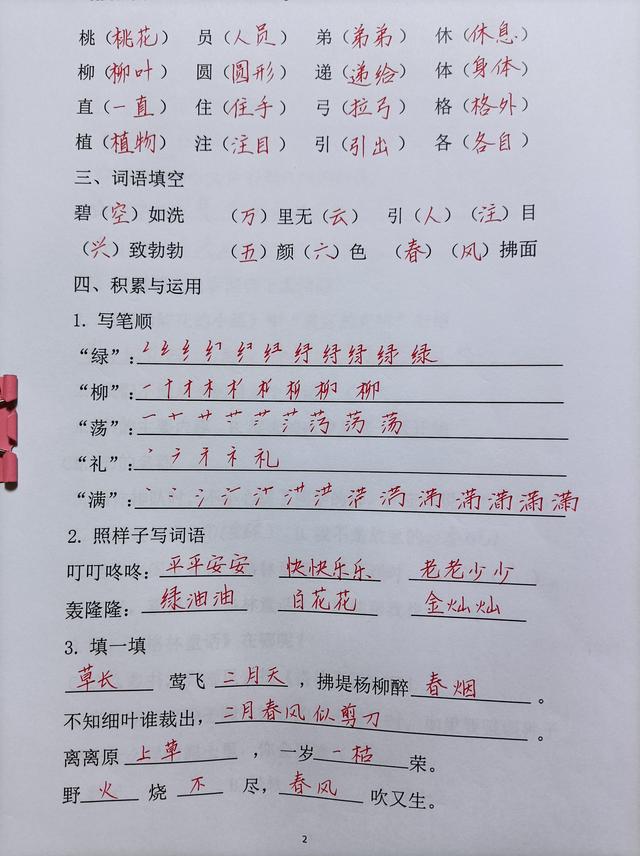 桃（桃花） 员（人员） 弟（弟弟） 休（休息）
柳（柳叶） 圆（圆形） 递（递给） 体（身体）
直（一直） 住（住手） 弓（拉弓） 格（格外）
植（植物） 注（注目） 引（引出） 各（各自）
三、词语填空
碧（空）如洗 （万）里无（云） 引（人）（注）目
（兴）致勃勃 （五）颜（六）色 （春）（风）拂面
四、积累与运用
1. 写笔顺
“绿”： 绿
“柳”： 柳 柳
“荡”： 荡 荡
“礼”： 礼
“满”： 满 满 满
2. 照样子写词语
叮叮咚咚：平平安安 快快乐乐 老老少少
轰隆隆：绿油油 白花花 金灿灿
3. 填一填
草长 莺飞 二月天 ，拂堤杨柳醉 春烟 。
不知细叶谁裁出，二月春风似剪刀 。
离离原 上草 ，一岁 一枯 荣。
野 火 烧 不 尽，春风 吹又生。
2